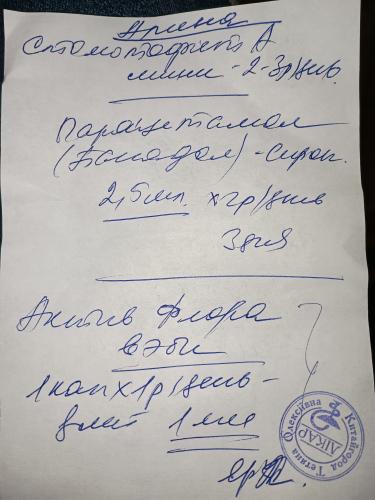 Арина
Стоматофит А
мини - 2-3р/день
Парацетамол
(Панадол) - сироп.
2,5мл. х 2р/день
3 дня
Актив Флора
бэби
1кап х 1р/день -
1 мес
Китайгород Тетяна Олексіївна
ЛІКАР